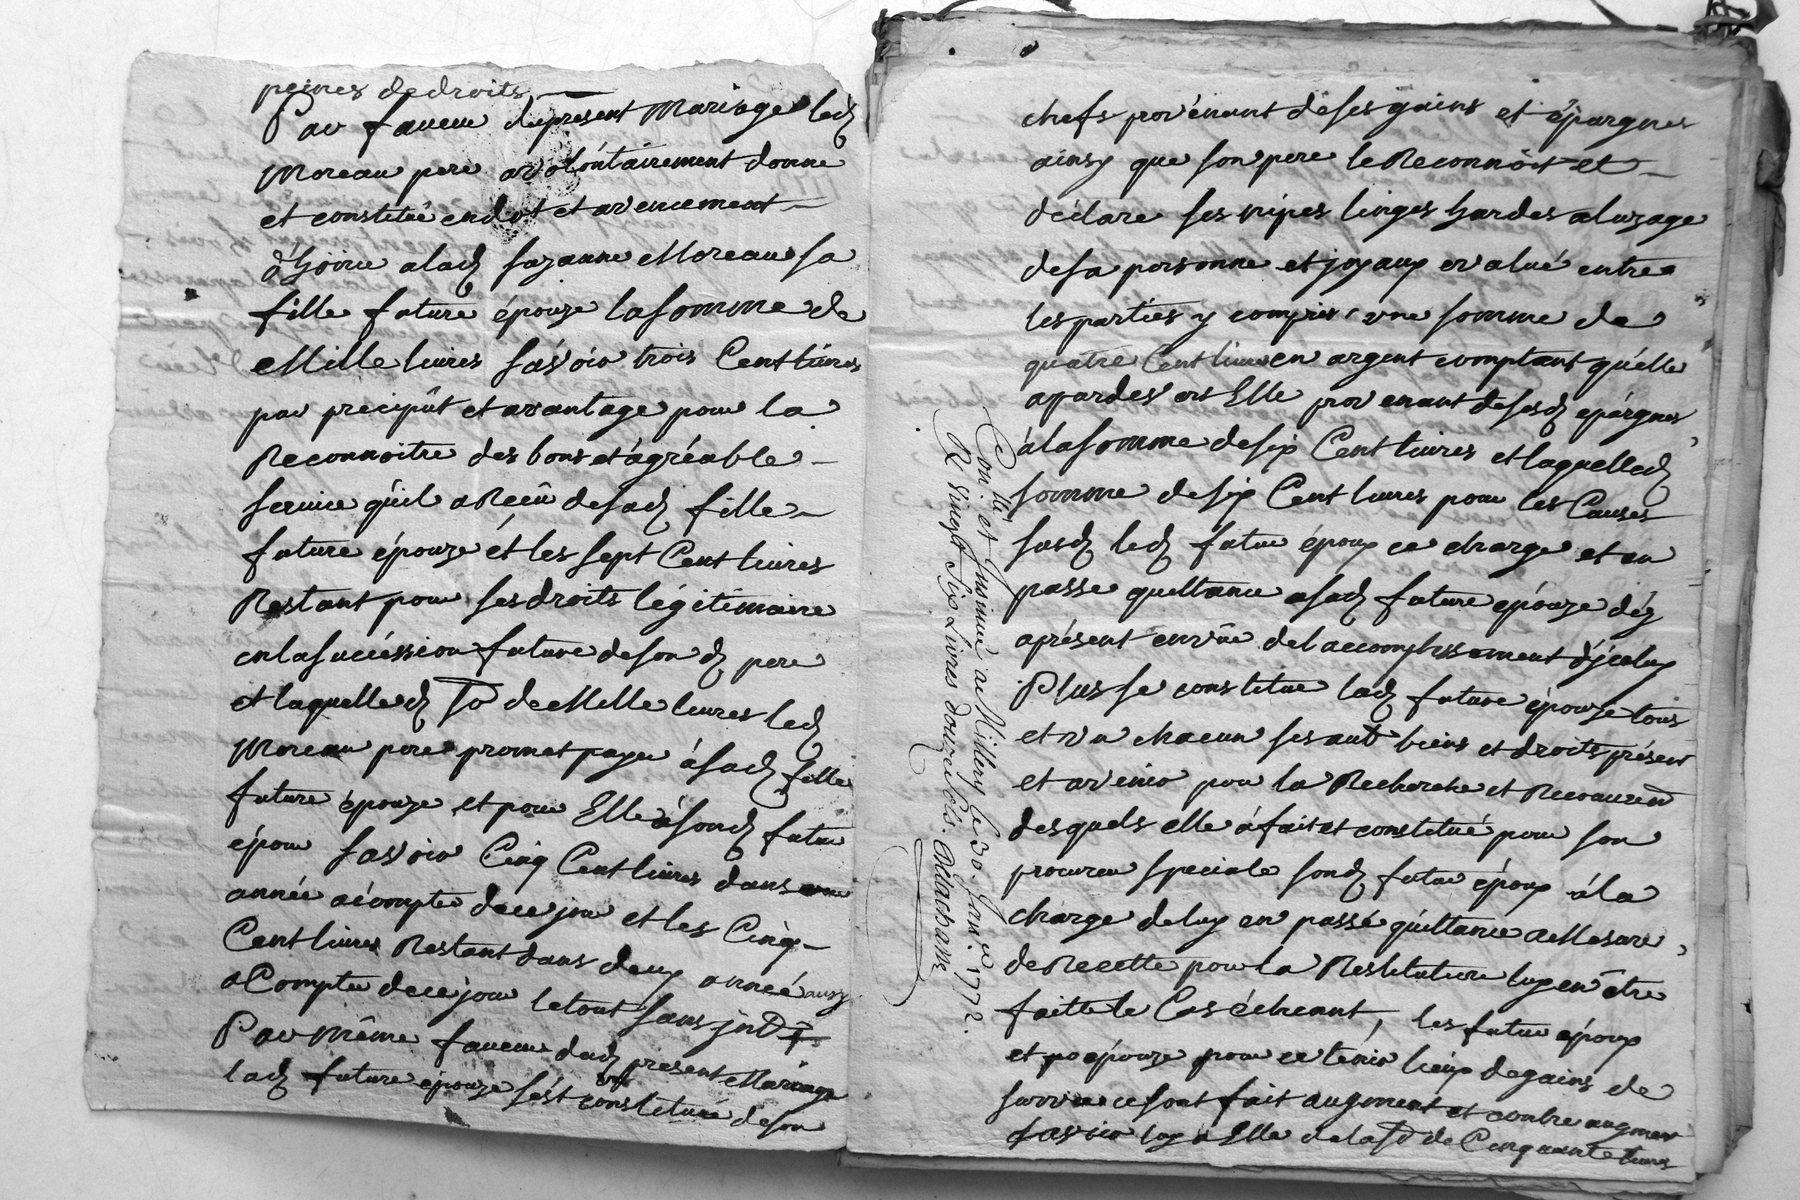 peines de droits
Par faveur du present Mariage led
Moreau pere a volóntairement donne
et constitué en dot et avencement
d'hoirie a lad suzanne Moreau sa
fille future épouze la somme de
Mille livres sásvoir trois Cent livres
par precipût et avantage pour la
Reconnoitre des bons et ágréable
service qúil a Reçû de sad fille
future épouze ét les sept Cent livres
Restant pour ses droits légitimaire
en la succéssion future de son d pere
et laquelle d So de Mille livres led
Moreau pere promet payer á sad fille
future épouze et pour Elle á sond futur
époux sasvoir Cinq Cent livres dans une
année á compter de ce jour et les Cinq
Cent livres Restant dans deux année aussy
a Compter de ce jour le tout sans jnt
Par même faveur dud present Mariage
lad future épouze s'ést constitué de son
chefs provénant de ses gains et épargnes
ainsy que son pere le Reconnôit et
déclare ses nipes linges hardes a luzage
de sa personne et joyaux evalué entre
les partiés y compris une somme de
quatre Cent livres en argent comptant qúelle
a pardesvers Elle provenant de sesd epárgnes
á la somme de six Cent livres et laquelled
somme de six Cent livres pour les Causes
susd led futur époux ce charge et en
passe quittance a sad future epóuze déz
aprésent en vûe de l'accomplissement d'jceluy
Plus se constitue lad future épouze tous
et un chacun ses aut biens et droits présent
et avenir pour la Recherche et Recouvremt
desquels elle á fait et constitué pour son
procureur speciale sond futur époux á la
charge de luy en passé quittance a Mesure
de Recette pour la Restitution luy en être
faitte le Cas échéant, les futur epoux
et epóuze pour ce ténir lieux de gains de
survie ce sont fait augment et contre augment
sasvoir luy a Elle de la So de Cinquante livres
Con.lé et Insinué a Millery le 30. Janv.er 1772.
R vingt six Livres douze sols.